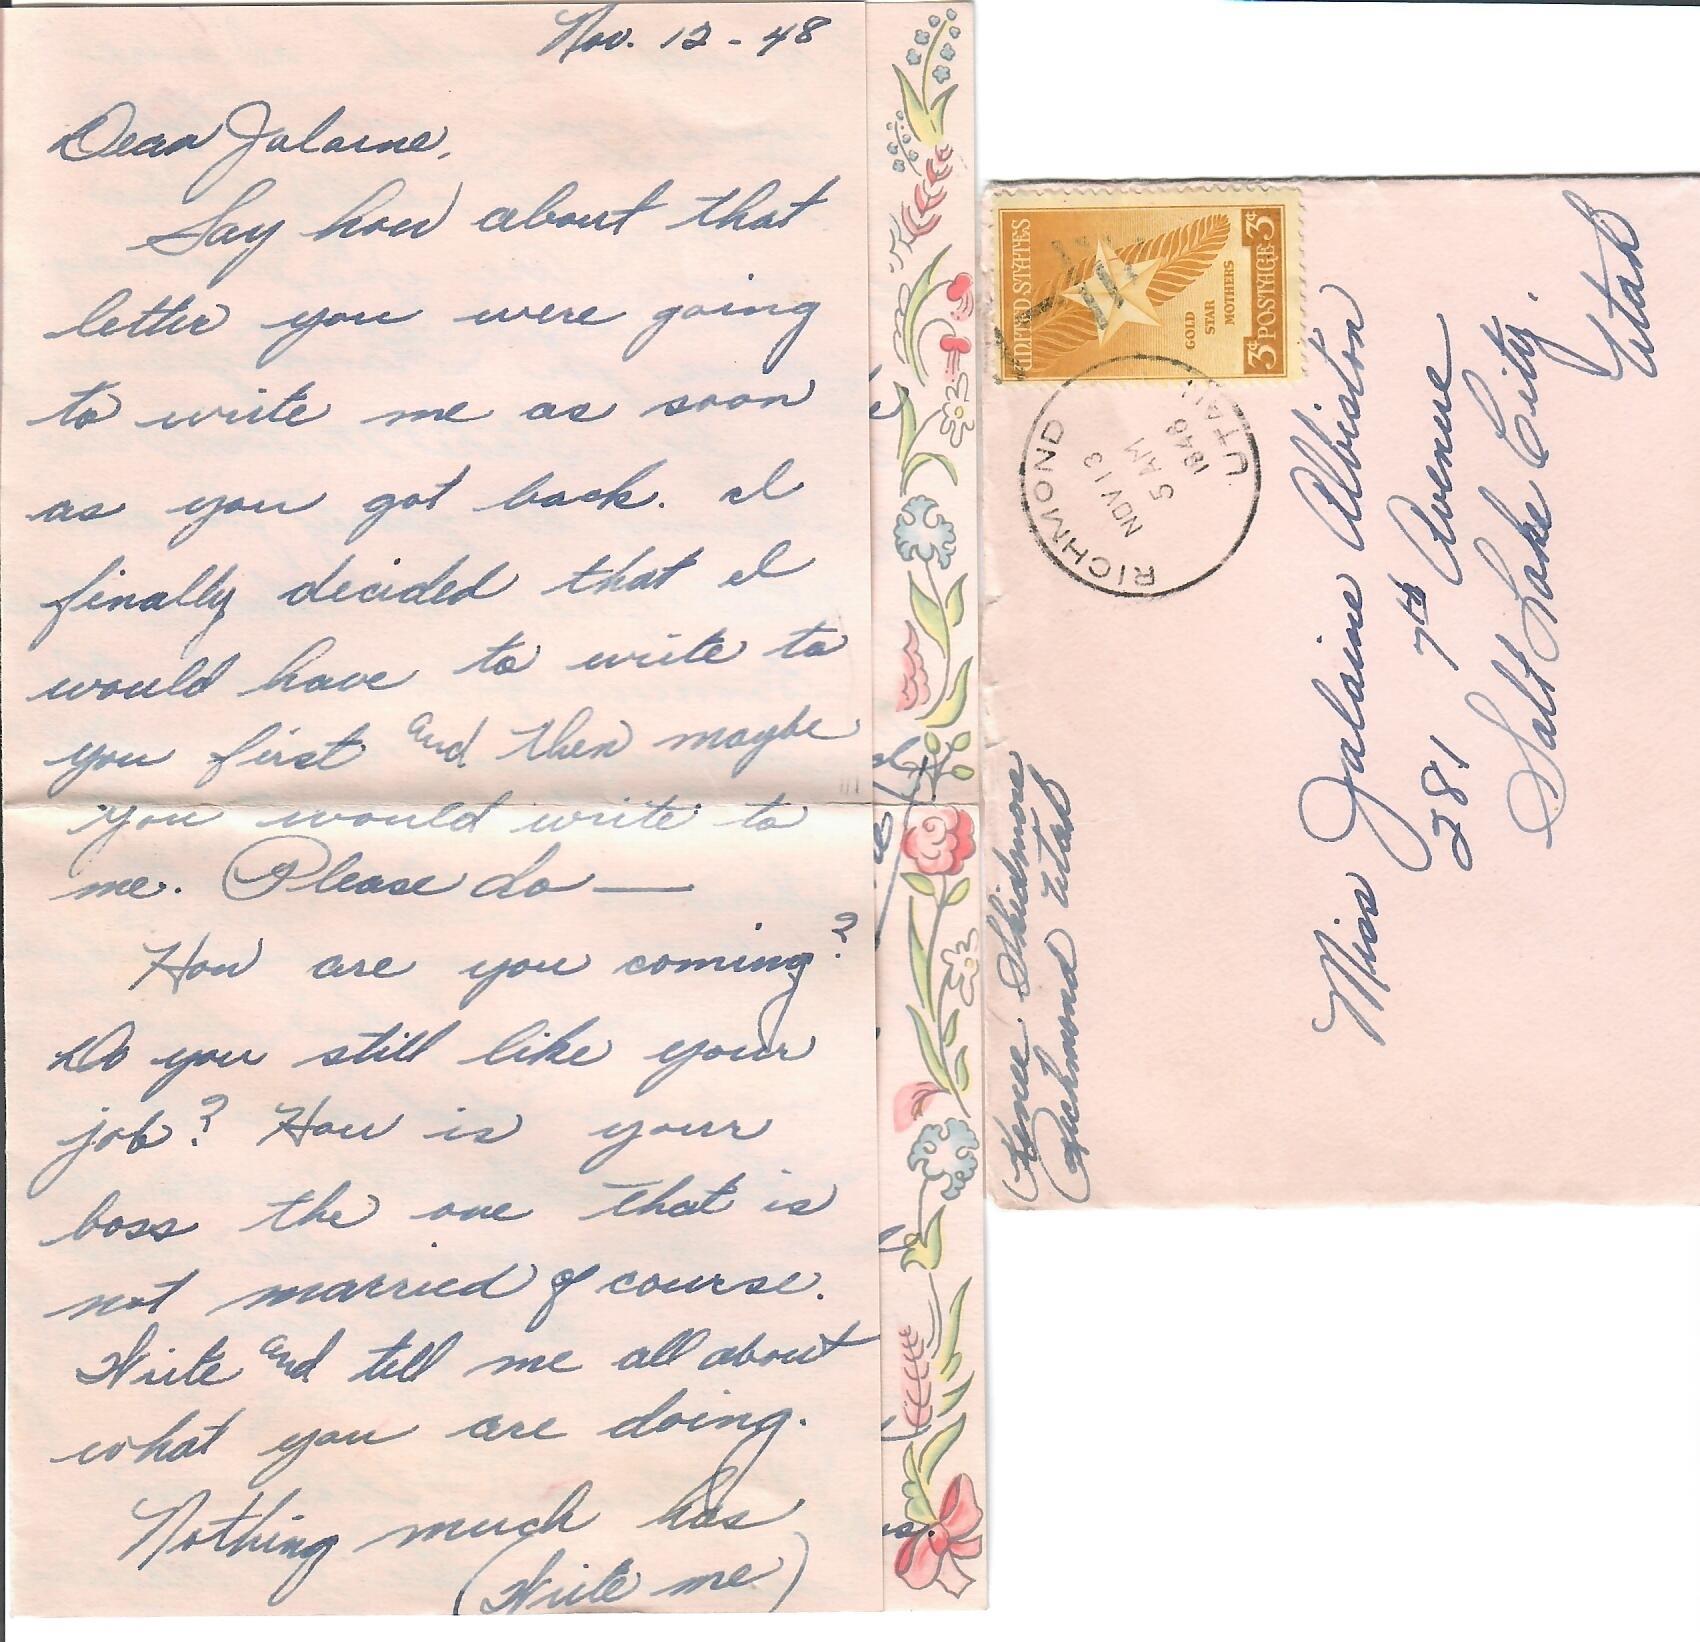 Nov. 12 - 48
Dear Jalaine,
Say how about that
letter you were going
to write me as soon
as you got back. I
finally decided that I
would have to write to
you first and then maybe
you would write to
me. Please do —
How are you coming?
Do you still like your
job? How is your
boss the one that is
not married of course.
Write and tell me all about
what you are doing.
Nothing much has
(Write me)
s.
UNITED STATES
GOLD
STAR
MOTHERS
3¢ POSTAGE 3¢
RICHMOND
NOV 13
5 AM
1948
UTAH
Skidmore
Richmond Utah
Miss Jalaine Albiston
281 7th Avenue
Salt Lake City.
Utah